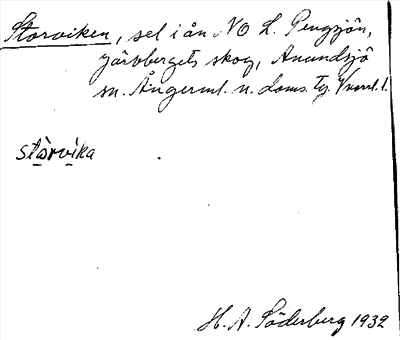 Storviken, sel i ån NO L. Pengsjön,
Järvbergets skog, Anundsjö
sn. Ångerml. n. doms. Tg. Vnorrl. l.
stòrvìka
H. A. Söderberg 1932